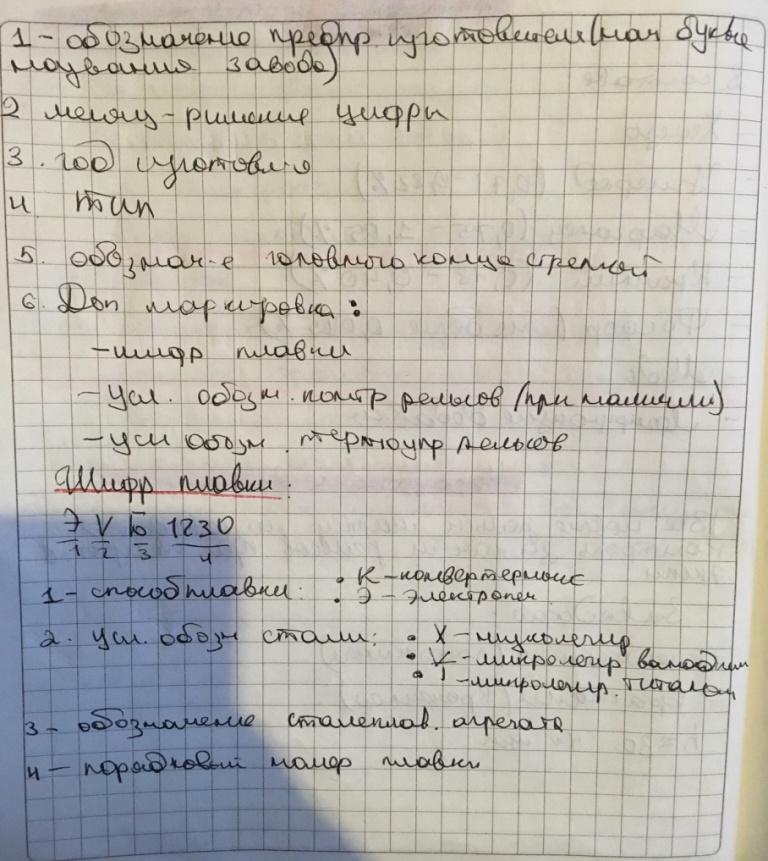 1 - обозначение предпр. изготовителя (нач буквы
названия завода)
2 месяц - римские цифры
3. год изготовл-я
4 тип
5. обознач-е головного конца стрелкой
6. Доп маркировка:
- шифр плавки
- Усл. обозн. контр рельсов (при наличии)
- усл обозн. термоупр рельсов
Шифр плавки:
Э V Б 1230
1 2 3 4
1 - способ плавки: • К - конвертерный
• Э - электропеч.
2. усл. обозн стали: • Х - низколегир
• V - микролегир ванадием
• Т - микролегир. титаном
3 - обозначение сталеплав. агрегата
4 - порядковый номер плавки